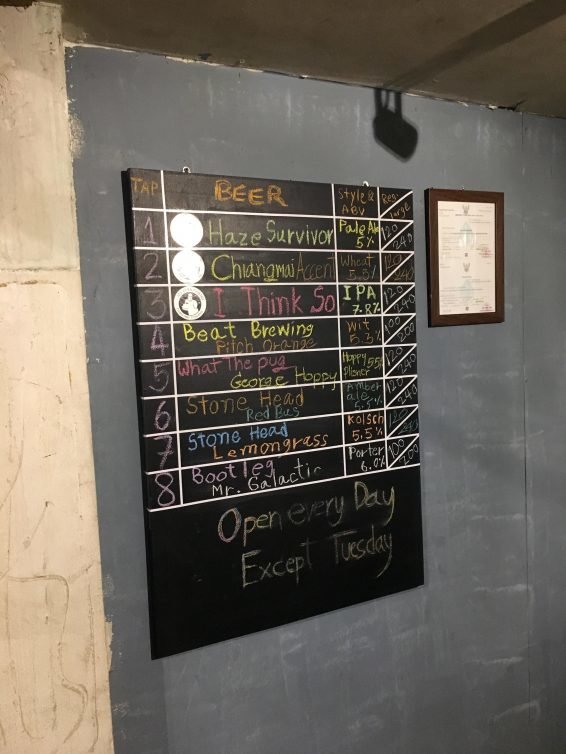 TAP BEER Style & ABV Reg. Large
1 Haze Survivor Pale Ale 5% 120 240
2 Chiangmai Accent Wheat 5.5% 120 240
3 I Think So IPA 7.8% 120 240
4 Beat Brewing Pitch Orange Wit 5.3% 100 200
5 What The pug George Hoppy Hoppy Pilsner 120 240
6 Stone Head Red Bus Amber ale 5.5% 120 240
7 Stone Head Lemongrass Kolsch 5.5% 120 240
8 Bootleg Mr. Galactic Porter 6.0% 100 200
Open every Day
Except Tuesday